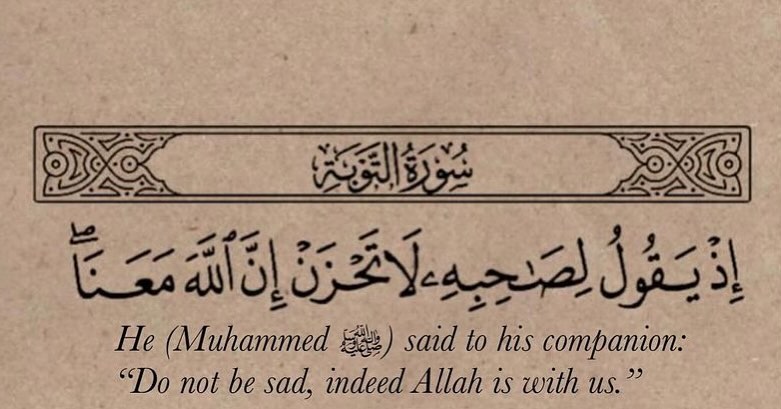 سُورَةُ التَّوۡبَةِ
إِذۡ يَقُولُ لِصَٰحِبِهِۦ لَا تَحۡزَنۡ إِنَّ ٱللَّهَ مَعَنَاۖ
He (Muhammed ﷺ) said to his companion:
“Do not be sad, indeed Allah is with us.”